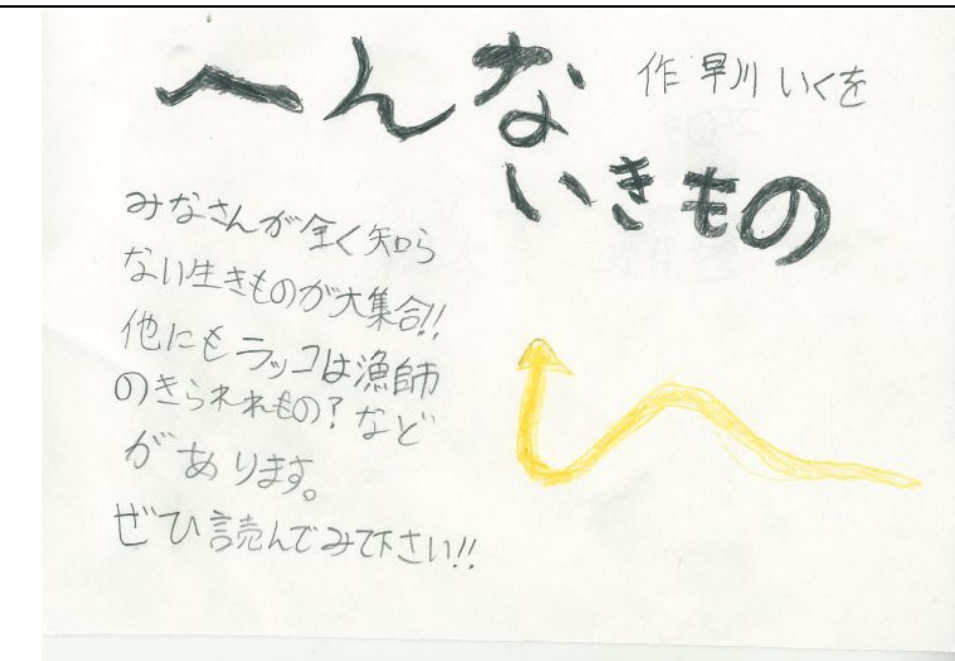 へんな
いきもの
作 早川 いくを
みなさんが全く知ら
ない生きものが大集合!!
他にもラッコは漁師
のきらわれもの?など
があります。
ぜひ読んでみて下さい!!